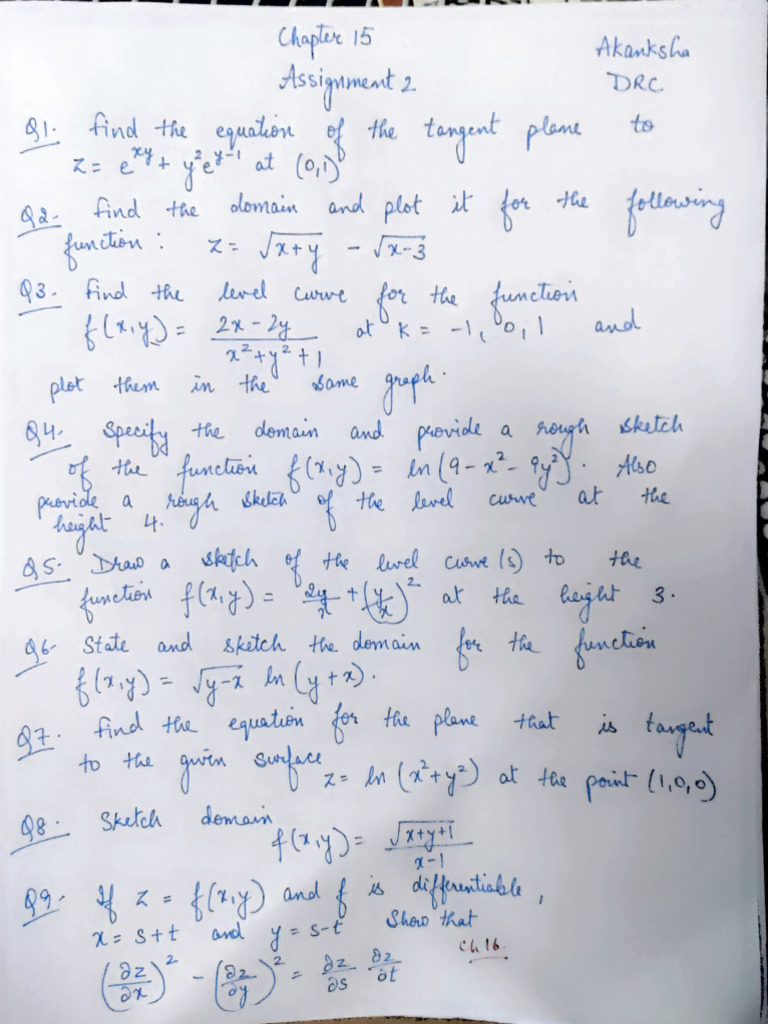 Chapter 15
Akanksha
Assignment 2
DRC
Q1. find the equation of the tangent plane to
z = e^xy + y²e^y-1 at (0,1)
Q2- find the domain and plot it for the following
function : z = √x+y - √x-3
Q3- find the level curve for the function
f(x,y) = 2x-2y / x²+y²+1 at K = -1, 0, 1 and
plot them in the same graph.
Q4- Specify the domain and provide a rough sketch
of the function f(x,y) = ln(9-x²-9y²). Also
provide a rough sketch of the level curve at the
height 4.
Q5- Draw a sketch of the level curve(s) to the
function f(x,y) = 2y/x + (y/x)² at the height 3.
Q6- State and sketch the domain for the function
f(x,y) = √y-x ln(y+x).
Q7. find the equation for the plane that is tangent
to the given surface
z = ln (x²+y²) at the point (1,0,0)
Q8. Sketch domain
f(x,y) = √x+y+1 / x-1
Q9- If z = f(x,y) and f is differentiable,
x = s+t and y = s-t Show that
Ch 16.
(∂z/∂x)² - (∂z/∂y)² = ∂z/∂s ∂z/∂t